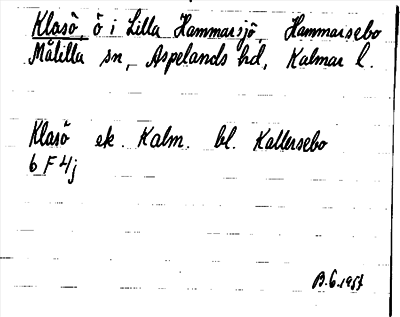 Klasö, ö i Lilla Hammarsjö, Hammarsebo
Målilla sn, Aspelands hd, Kalmar l.
Klasö ek. Kalm. bl. Kallersebo
6 F 4j
B.G. 1957